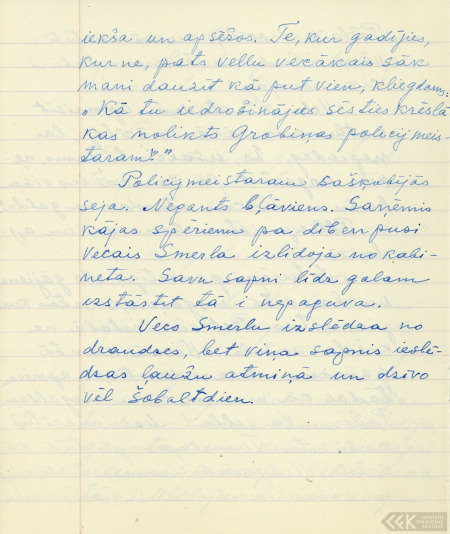 iekšā un apsēžos. Te, kur gadījies,
kur ne, pats vellu vecākais sāk
mani dauzīt kā put vien, kliegdams:
„Kā tu iedrošinājies sēsties krēslā
kas nolikts Grobiņas policijmeis-
taram!"
Policijmeistaram saškobījās
seja. Negants bļāviens. Saņēmis
kājas spērienu pa dibenpusi
Vecais Smerla izlidoja no kabi-
neta. Savu sapni līdz galam
izstāstīt tā i nepaguva.
Veco Smerlu izslēdza no
draudzes, bet viņa sapnis ieslē-
dzās ļaužu atmiņā un dzīvo
vēl šobaltdien.